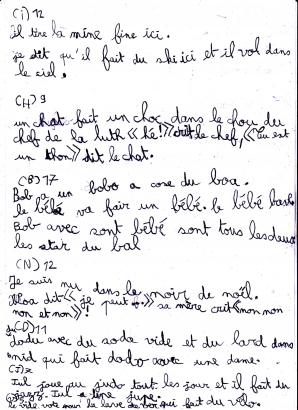 (i) 12
il tire la mine fine ici.
je dit qu'il fait du ski ici et il vol dans
le ciel.
(H) 9
un chat fait un choc dans le fou du
chef de la luth « hé! » crit le chef, « tu est
un thon » dit le chat.
(B) 17
Bob, un bobo a cose du boa.
le bébé va fair un bébé. le bébé
Bob avec sont bébé sont tous les deux
les star du bal
(N) 12
Je suis nu dans le noir de noël.
dit « je peut » sa mère crit « non non
non et non »!
(D) 11
dodu avec du soda vide et du lard dans
nid qui fait dodo avec une dame.
(J)
Jul joue au judo tout les jour et il fait du
jazz. Jul a une jupe.
le vide qui fait du vélo.